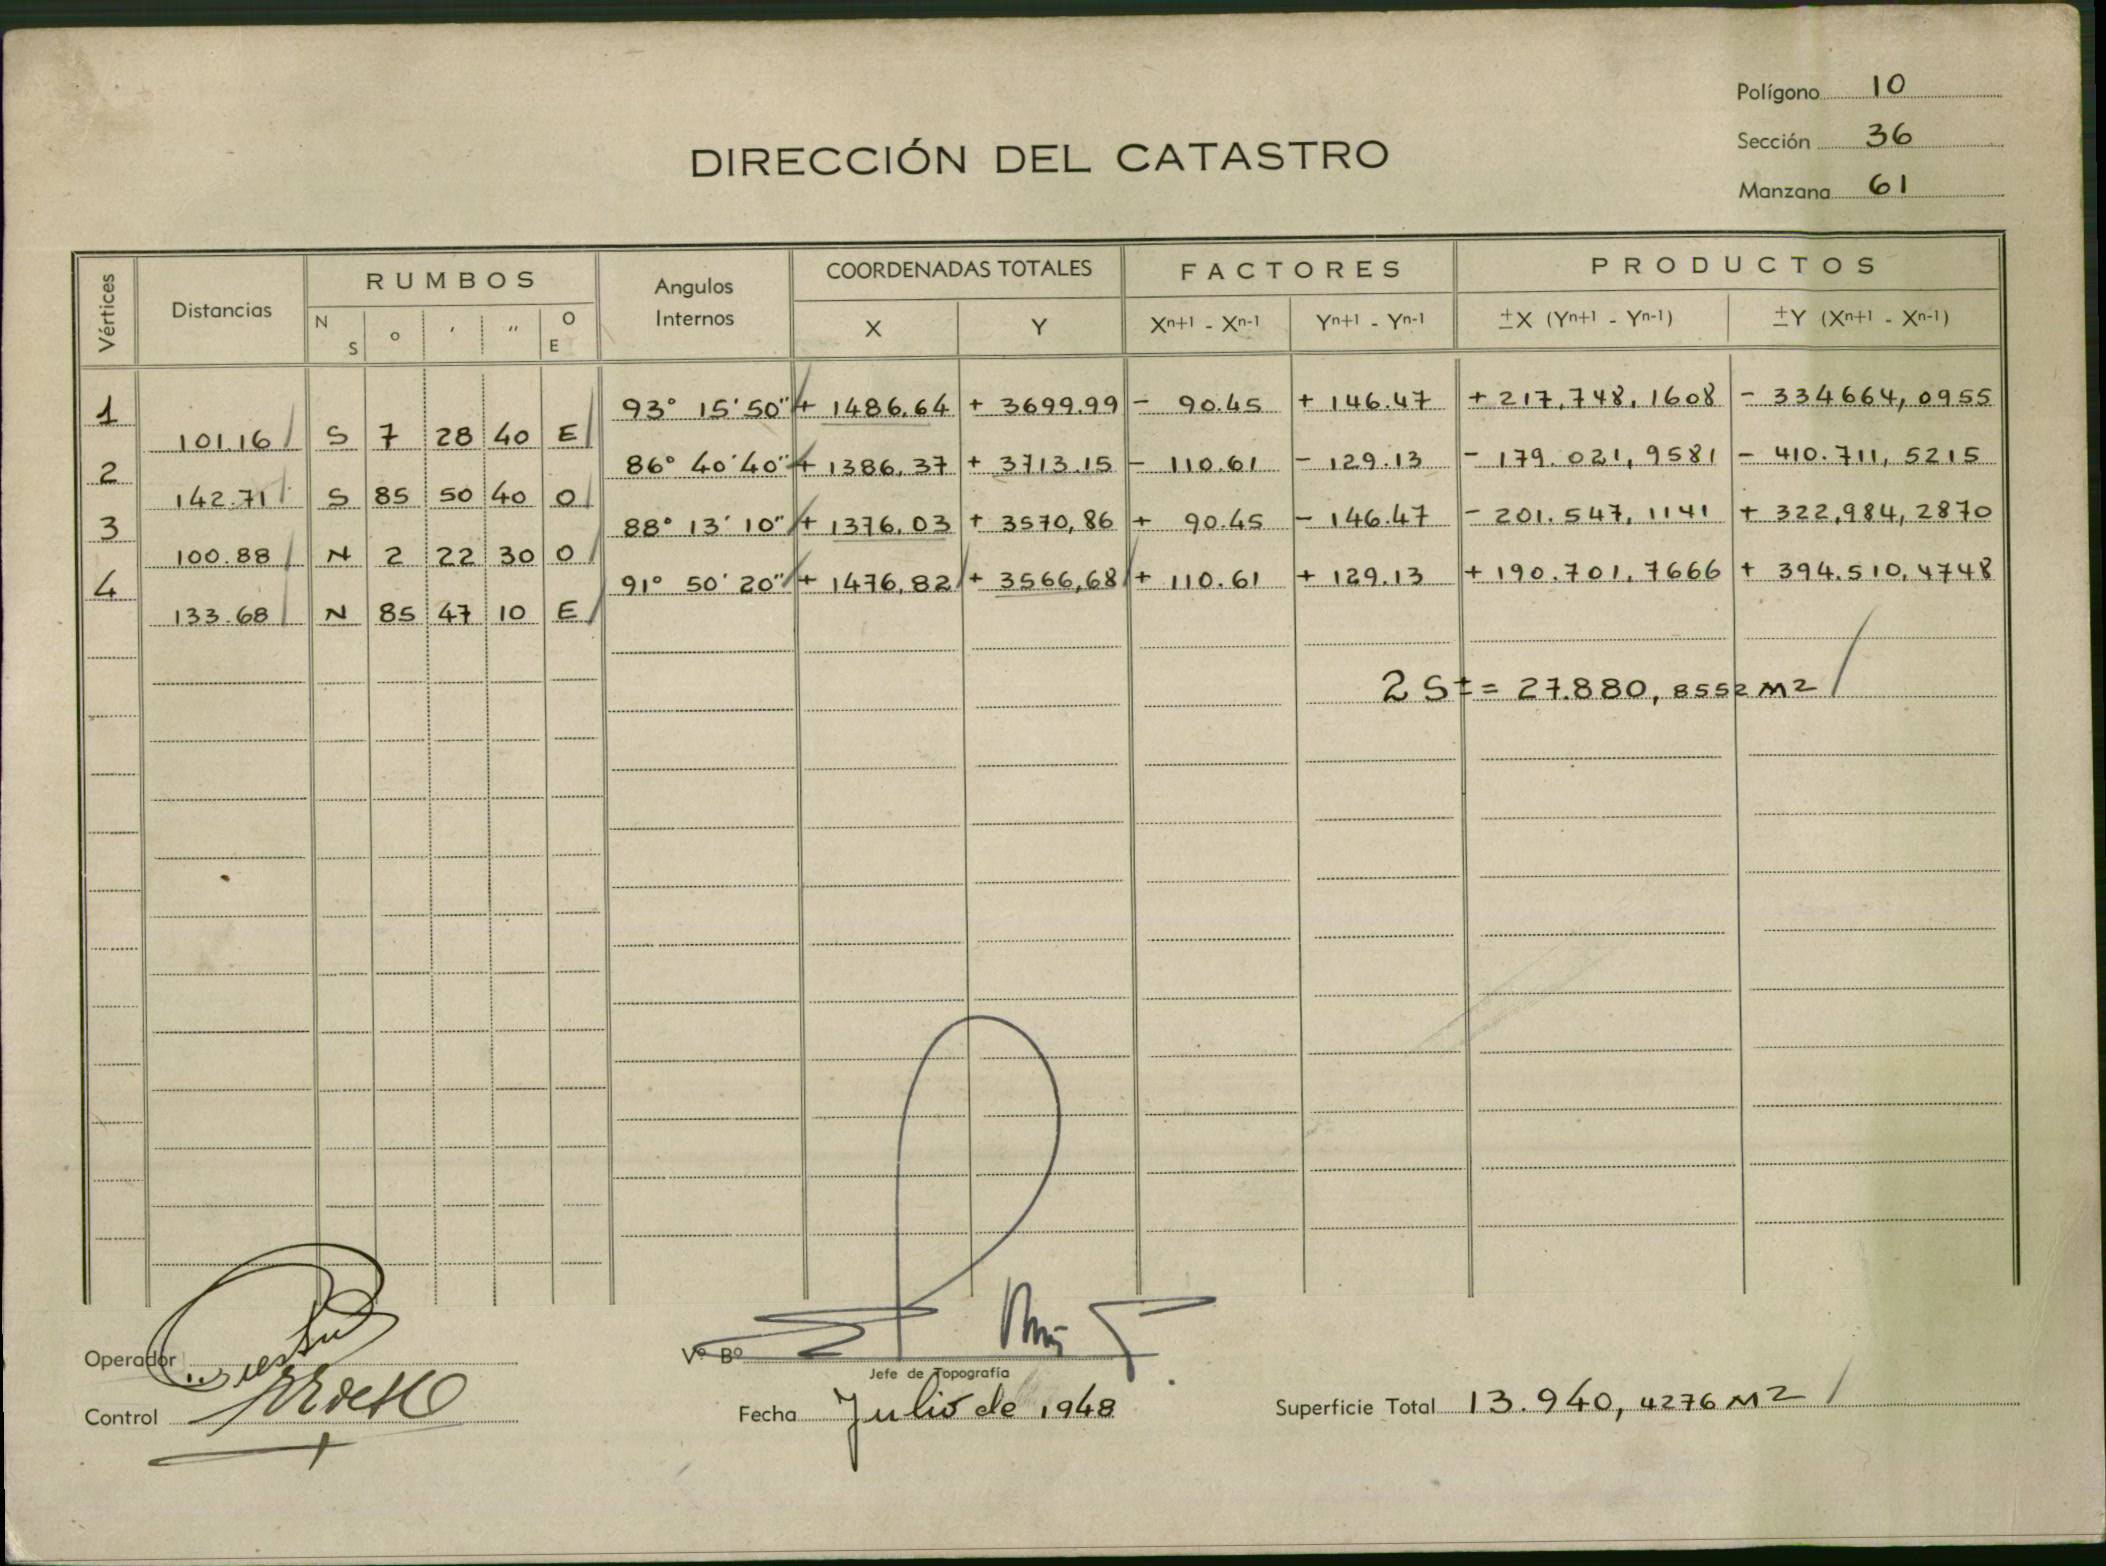 Polígono 10
Sección 36
Manzana 61
DIRECCIÓN DEL CATASTRO
Vértices Distancias RUMBOS Angulos Internos COORDENADAS TOTALES FACTORES PRODUCTOS
N S o ' " O E X Y Xn+1 - Xn-1 Yn+1 - Yn-1 ±X (Yn+1 - Yn-1) ±Y (Xn+1 - Xn-1)
1 93° 15' 50" + 1486,64 + 3699.99 - 90.45 + 146.47 + 217.748,1608 - 334664,0955
101.16 S 7 28 40 E
2 86° 40' 40" + 1386,37 + 3713.15 - 110.61 - 129.13 - 179.021,9581 - 410.711,5215
142.71 S 85 50 40 O
3 88° 13' 10" + 1376,03 + 3570,86 + 90.45 - 146.47 - 201.547,1141 + 322,984,2870
100.88 N 2 22 30 O
4 91° 50' 20" + 1476,82 + 3566,68 + 110.61 + 129.13 + 190.701,7666 + 394.510,4748
133.68 N 85 47 10 E
2 S ± = 27.880,8552 M2
Operador
Vº Bº
Jefe de Topografía
Control
Fecha Julio de 1948
Superficie Total 13.940,4276 M2